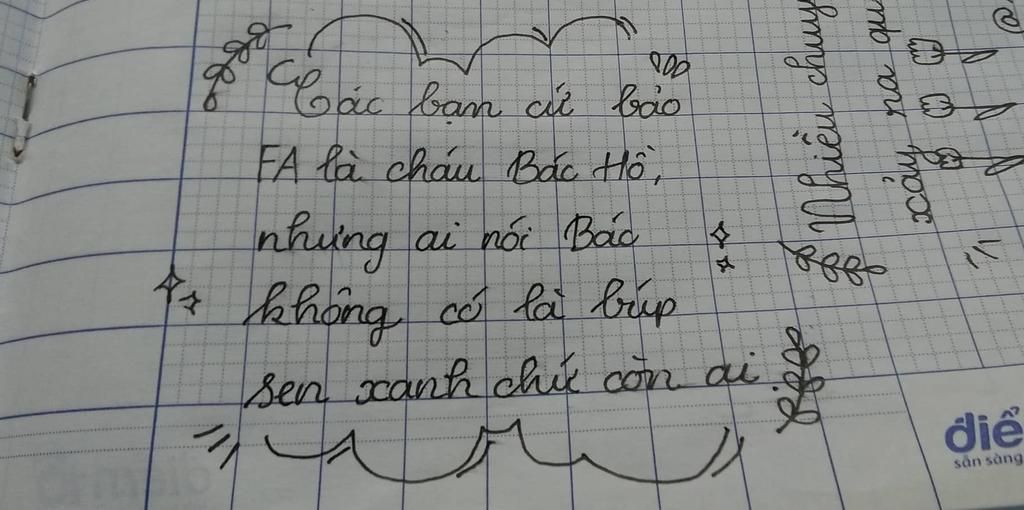 Các bạn cứ bảo
FA là cháu Bác Hồ,
nhưng ai nói Bác
không có là búp
sen xanh chứ còn ai.
Nhiều chuy
xảy ra qu
điể
sẵn sàng